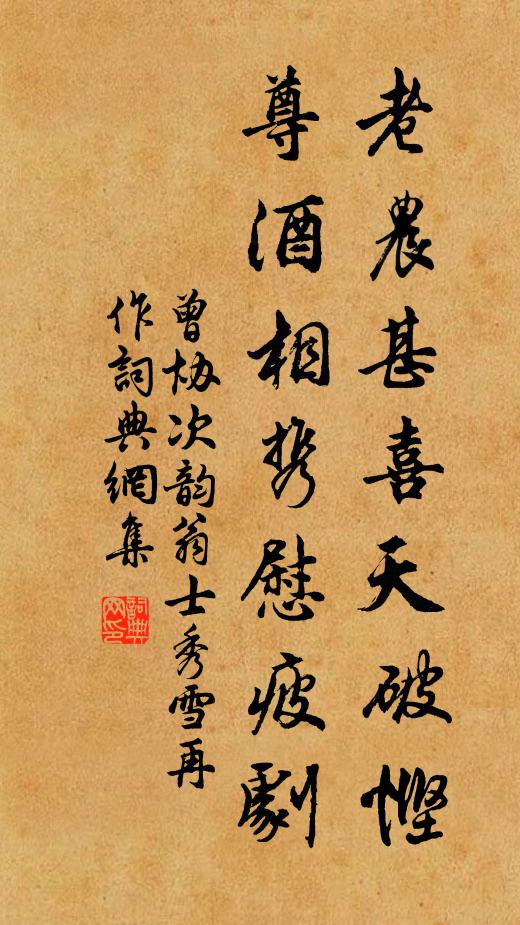 老農甚喜天破慳
尊酒相携慰疲劇
曾協次韵翁士秀雪再
作詞典網集
詞典網印